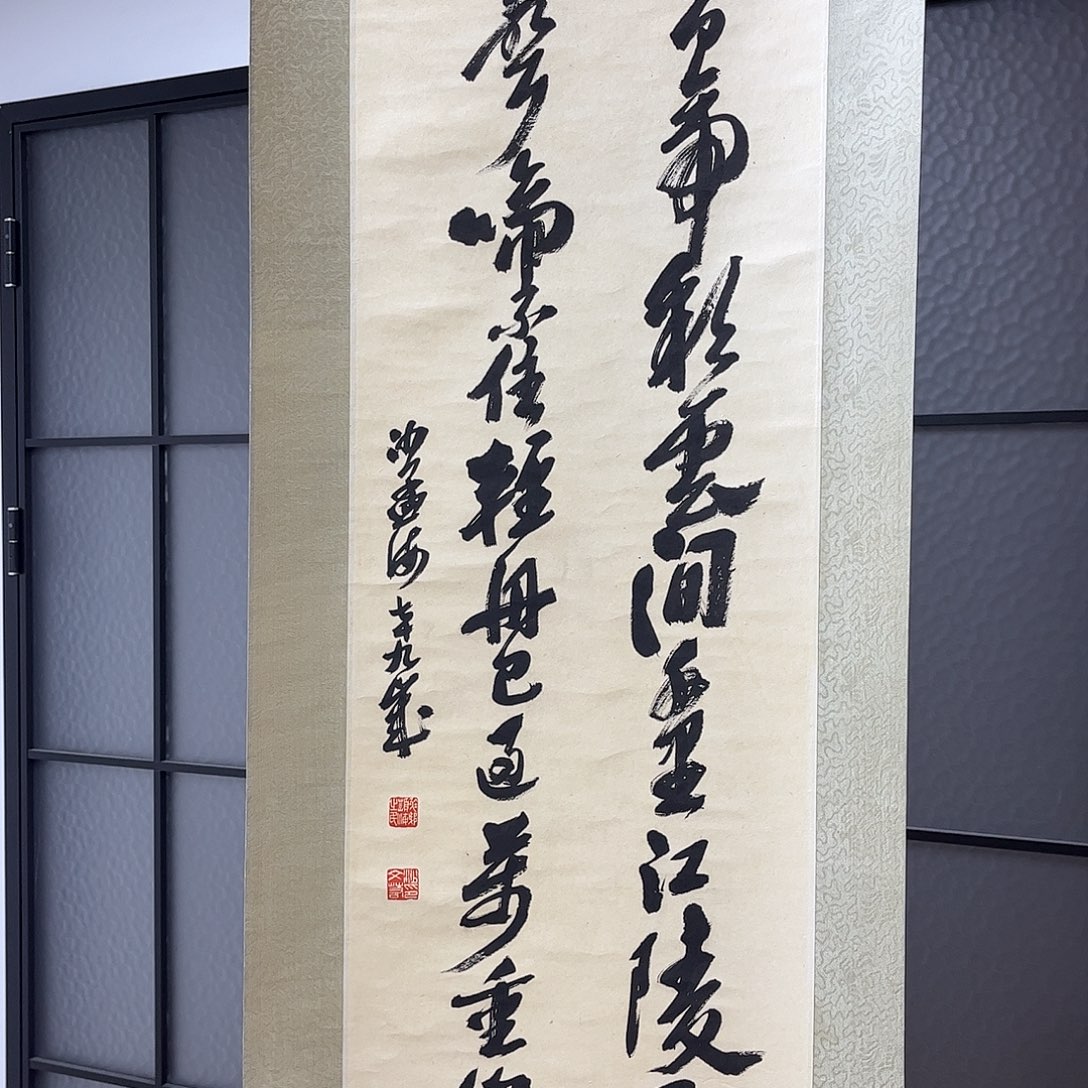 白帝彩雲間千里江陵
聲啼不住輕舟已過萬重
沙孟海七十九歲